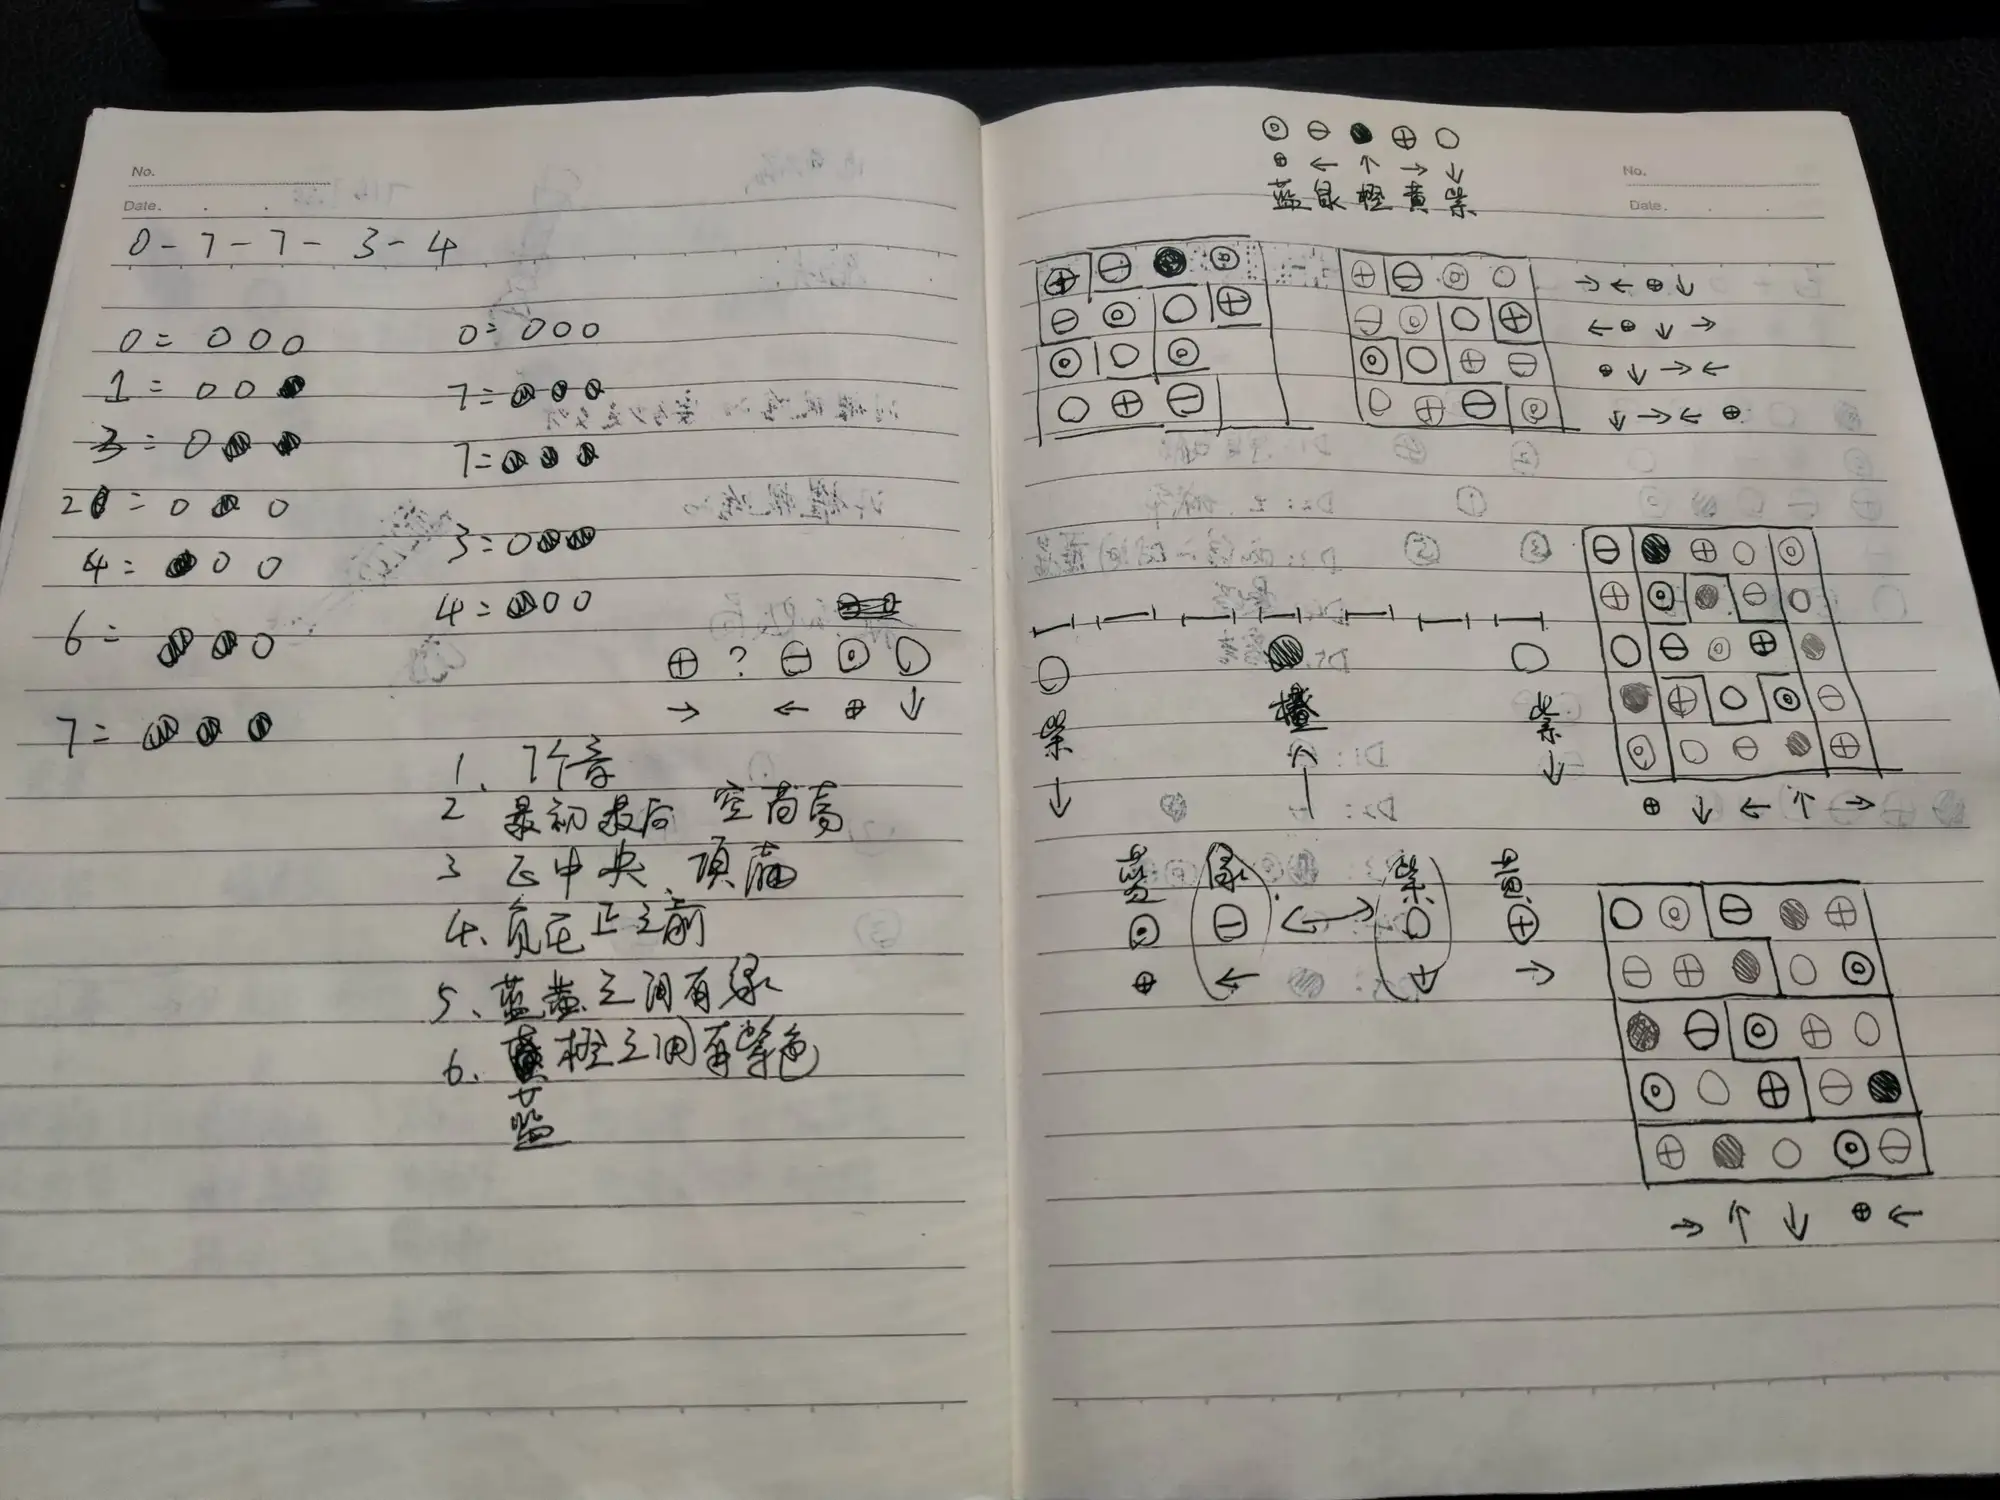 No.
Date.
0-7-7-3-4
0=
1=
3=
2=
4=
6=
7=
0=
7=
7=
3=
4=
?
→ ← ↓
1、7个音
2 最初最后 空 高
3 正中央、顶
4、负在正之前
5、蓝黄之间有绿
6、橙之间有紫色
蓝
No.
Date.
← ↑ → ↓
蓝 绿 橙 黄 紫
→ ← ⊕ ↓
← ⊕ ↓ →
⊕ ↓ → ←
↓ → ← ⊕
紫 橙 紫
↓ ↑ ↓
⊕ ↓ ← ↑ →
蓝 绿 紫 黄
⊕ ← ↓ →
→ ↑ ↓ ⊕ ←